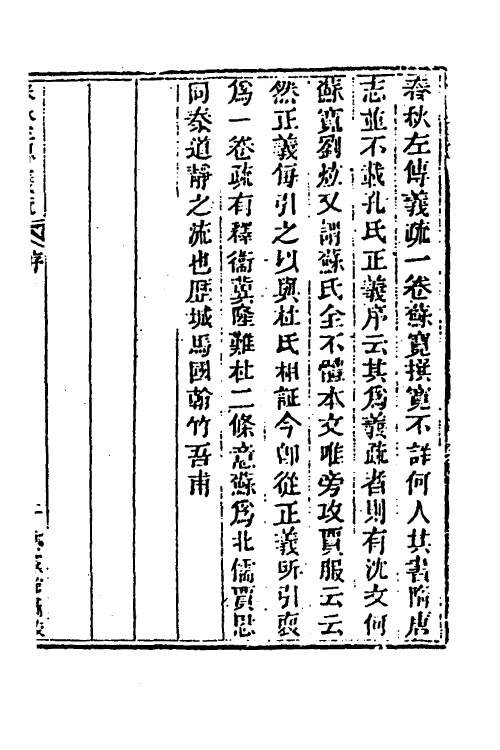 春秋左傳義疏一卷蘇寬撰寬不詳何人其書隋唐
志並不載孔氏正義序云其爲義疏者則有沈文何
蘇寬劉炫又謂蘇氏全不體本文唯旁攻賈服云云
然正義每引之以與杜氏相証今卽從正義所引裒
爲一卷疏有釋衞冀隆難杜二條意蘇爲北儒賈思
同秦道靜之流也歴城馬國翰竹吾甫
序